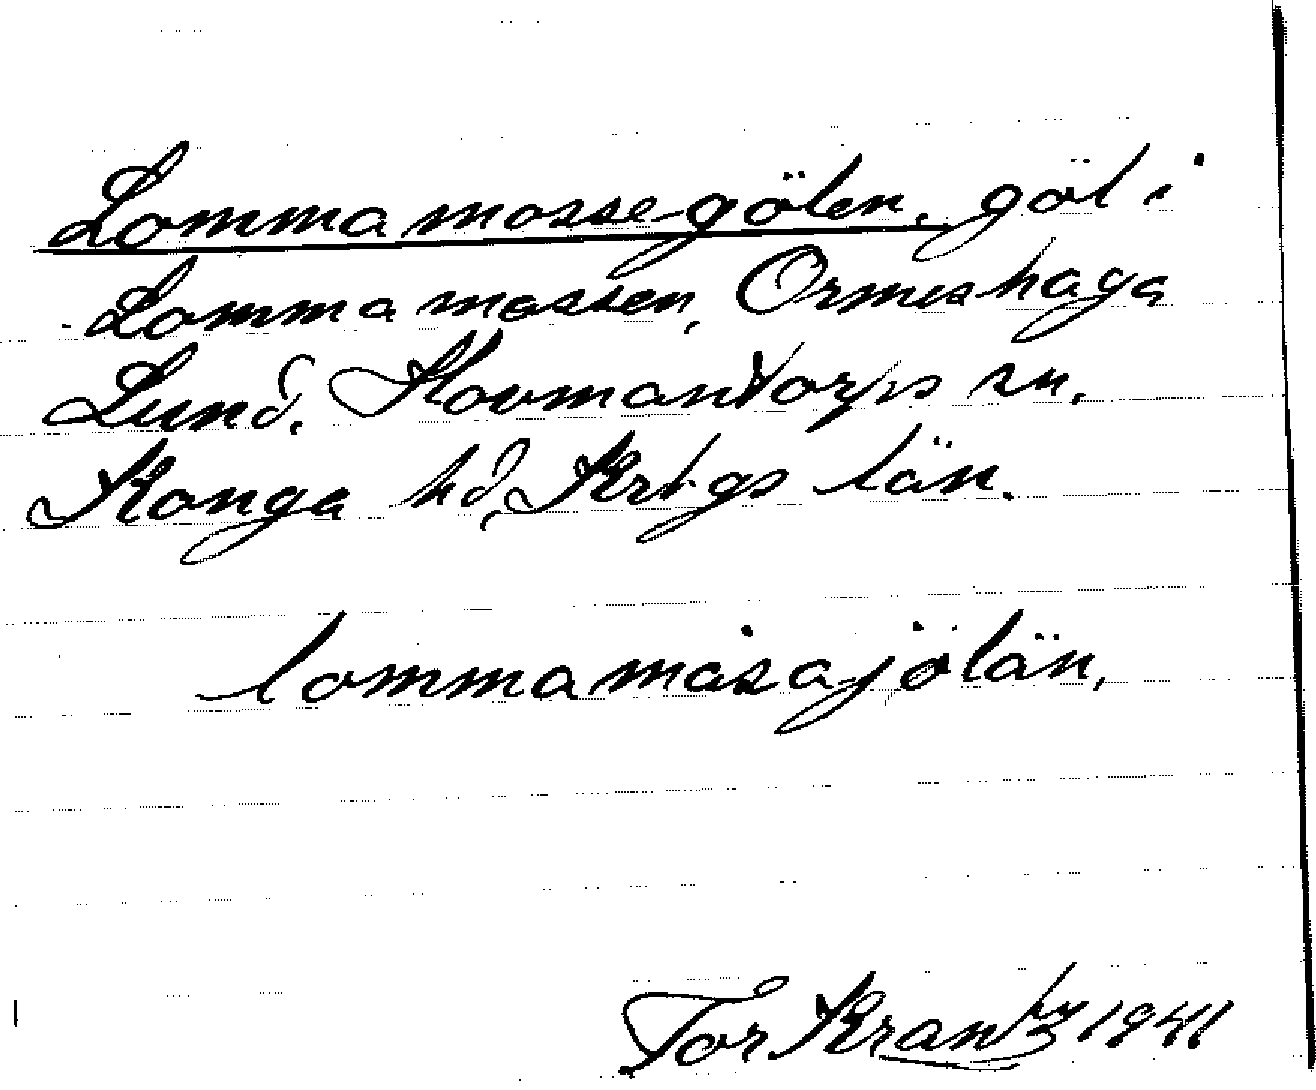 Lommamossegölen, göl i
Lommamossen, Ormeshaga
Lund, Hovmantorps sn,
Konga hd, Krbgs län.
lommamåsajölän,
Tor Krantz 1941